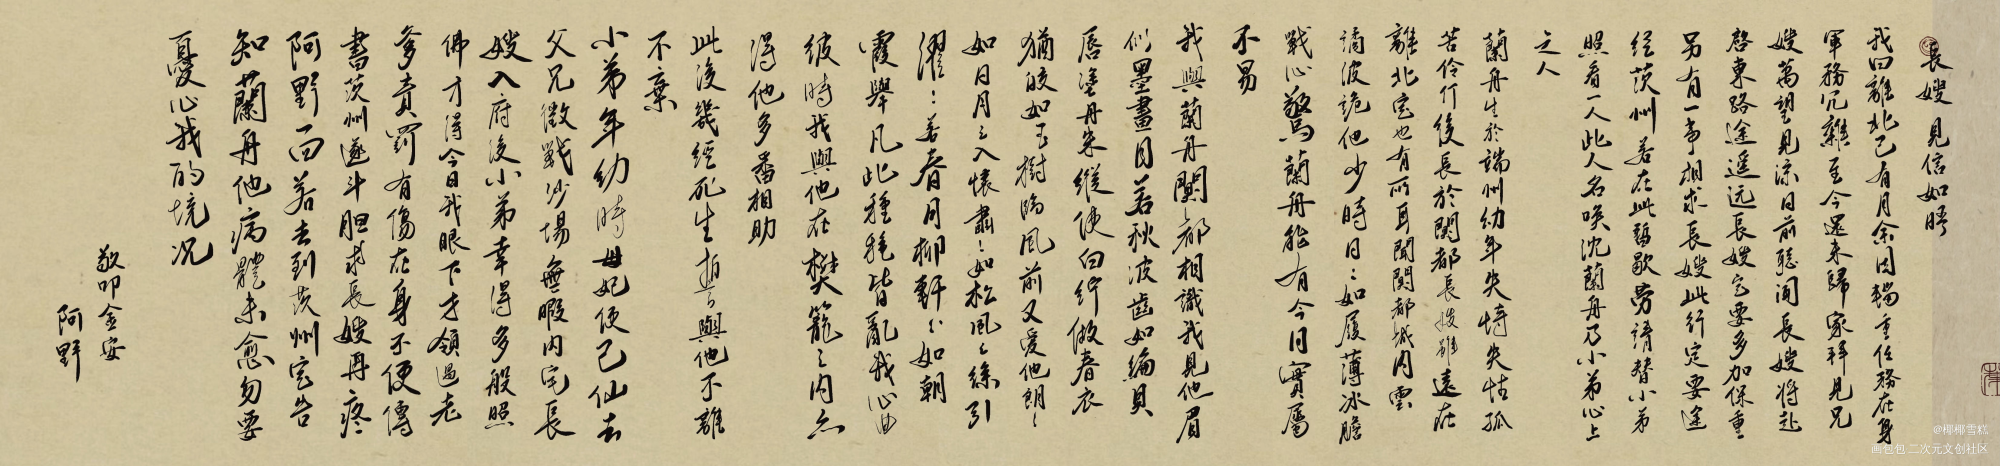 長嫂 見信如晤
我曰離北已有月余因輜重任務在身
軍務冗雜至今還未歸家拜見兄
嫂萬望見涼日前聽聞長嫂將赴
啓東路途遥远長嫂定要多加保重
另有一事相求長嫂此行定要途
经茨州若在此暫歇勞請替小弟
照看一人此人名喚沈蘭舟乃小弟心上
之人
蘭舟生於端州幼年失恃失怙孤
苦伶仃後長於闃都長嫂雖遠在
離北定也有所耳聞闃都城内雲
譎波詭他少時日〻如履薄冰膽
戰心驚蘭舟能有今日實屬
不易
我與蘭舟闃都相識我見他眉
似墨畫目若秋波齒如編貝
唇塗丹朱縱使白紵做春衣
猶皎如玉樹臨風前又愛他朗〻
如日月之入懷肅〻如松風之徐引
濯〻若春月柳軒〻如朝
霞舉凡此種種皆亂我心曲
彼時我與他在樊籠之内亦
得他多番相助
此後幾經死生拋言與他不離
不棄
小弟年幼時母妃便已仙去
父兄徵戰沙場無暇内宅長
嫂入府後小弟幸得多般照
佛才得今日我眼下才領過老
爹責罰有傷在身不便傳
書茨州遂斗胆求長嫂再疼
阿野一回若去到茨州定告
知蘭舟他病體未愈勿要
憂心我的境况
敬叩金安
阿野
@椰椰雪糕
画包包 二次元文创社区